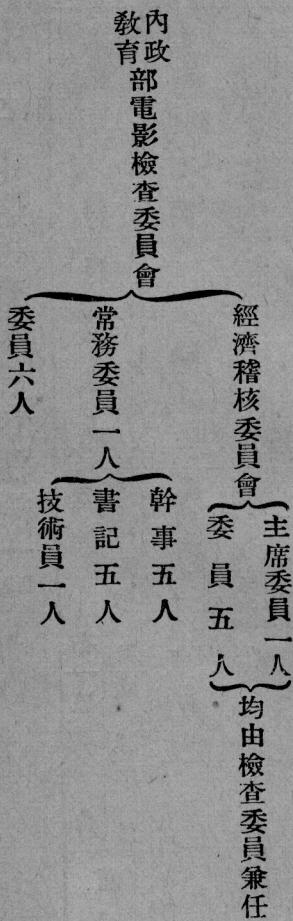 內政
教育
部電影檢查委員會
經濟稽核委員會
主席委員一人
委員五人
均由檢查委員兼任
常務委員一人
幹事五人
書記五人
技術員一人
委員六人